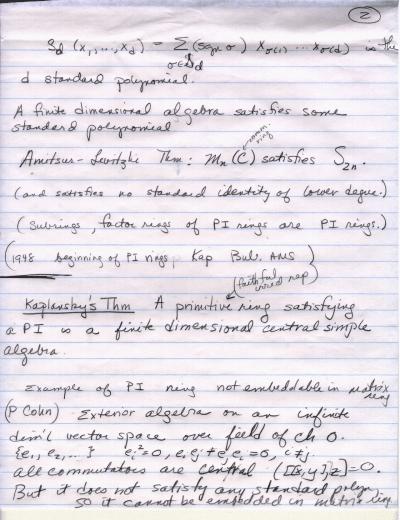 2
S_d (x_1, ..., x_d) = Σ_{σ∈S_d} (sgn σ) x_{σ(1)} ... x_{σ(d)} is the
d standard polynomial.
A finite dimensional algebra satisfies some
standard polynomial
comm. ring
Amitsur-Levitzki Thm: M_n (C) satisfies S_{2n}.
(and satisfies no standard identity of lower degree.)
(Subrings, factor rings of PI rings are PI rings.)
(1948 beginning of PI rings, Kap Bul. AMS)
(faithful irred rep)
Kaplansky's Thm A primitive ring satisfying
a PI is a finite dimensional central simple
algebra.
Example of PI ring not embeddable in matrix ring
(P Cohn) Exterior algebra on an infinite
dim'l vector space over field of ch 0.
{e_1, e_2, ...} e_i^2=0, e_i e_j + e_j e_i = 0, i≠j.
all commutators are central. ([[x,y],z]=0.
But it does not satisfy any standard polyn
so it cannot be embedded in matrix ring